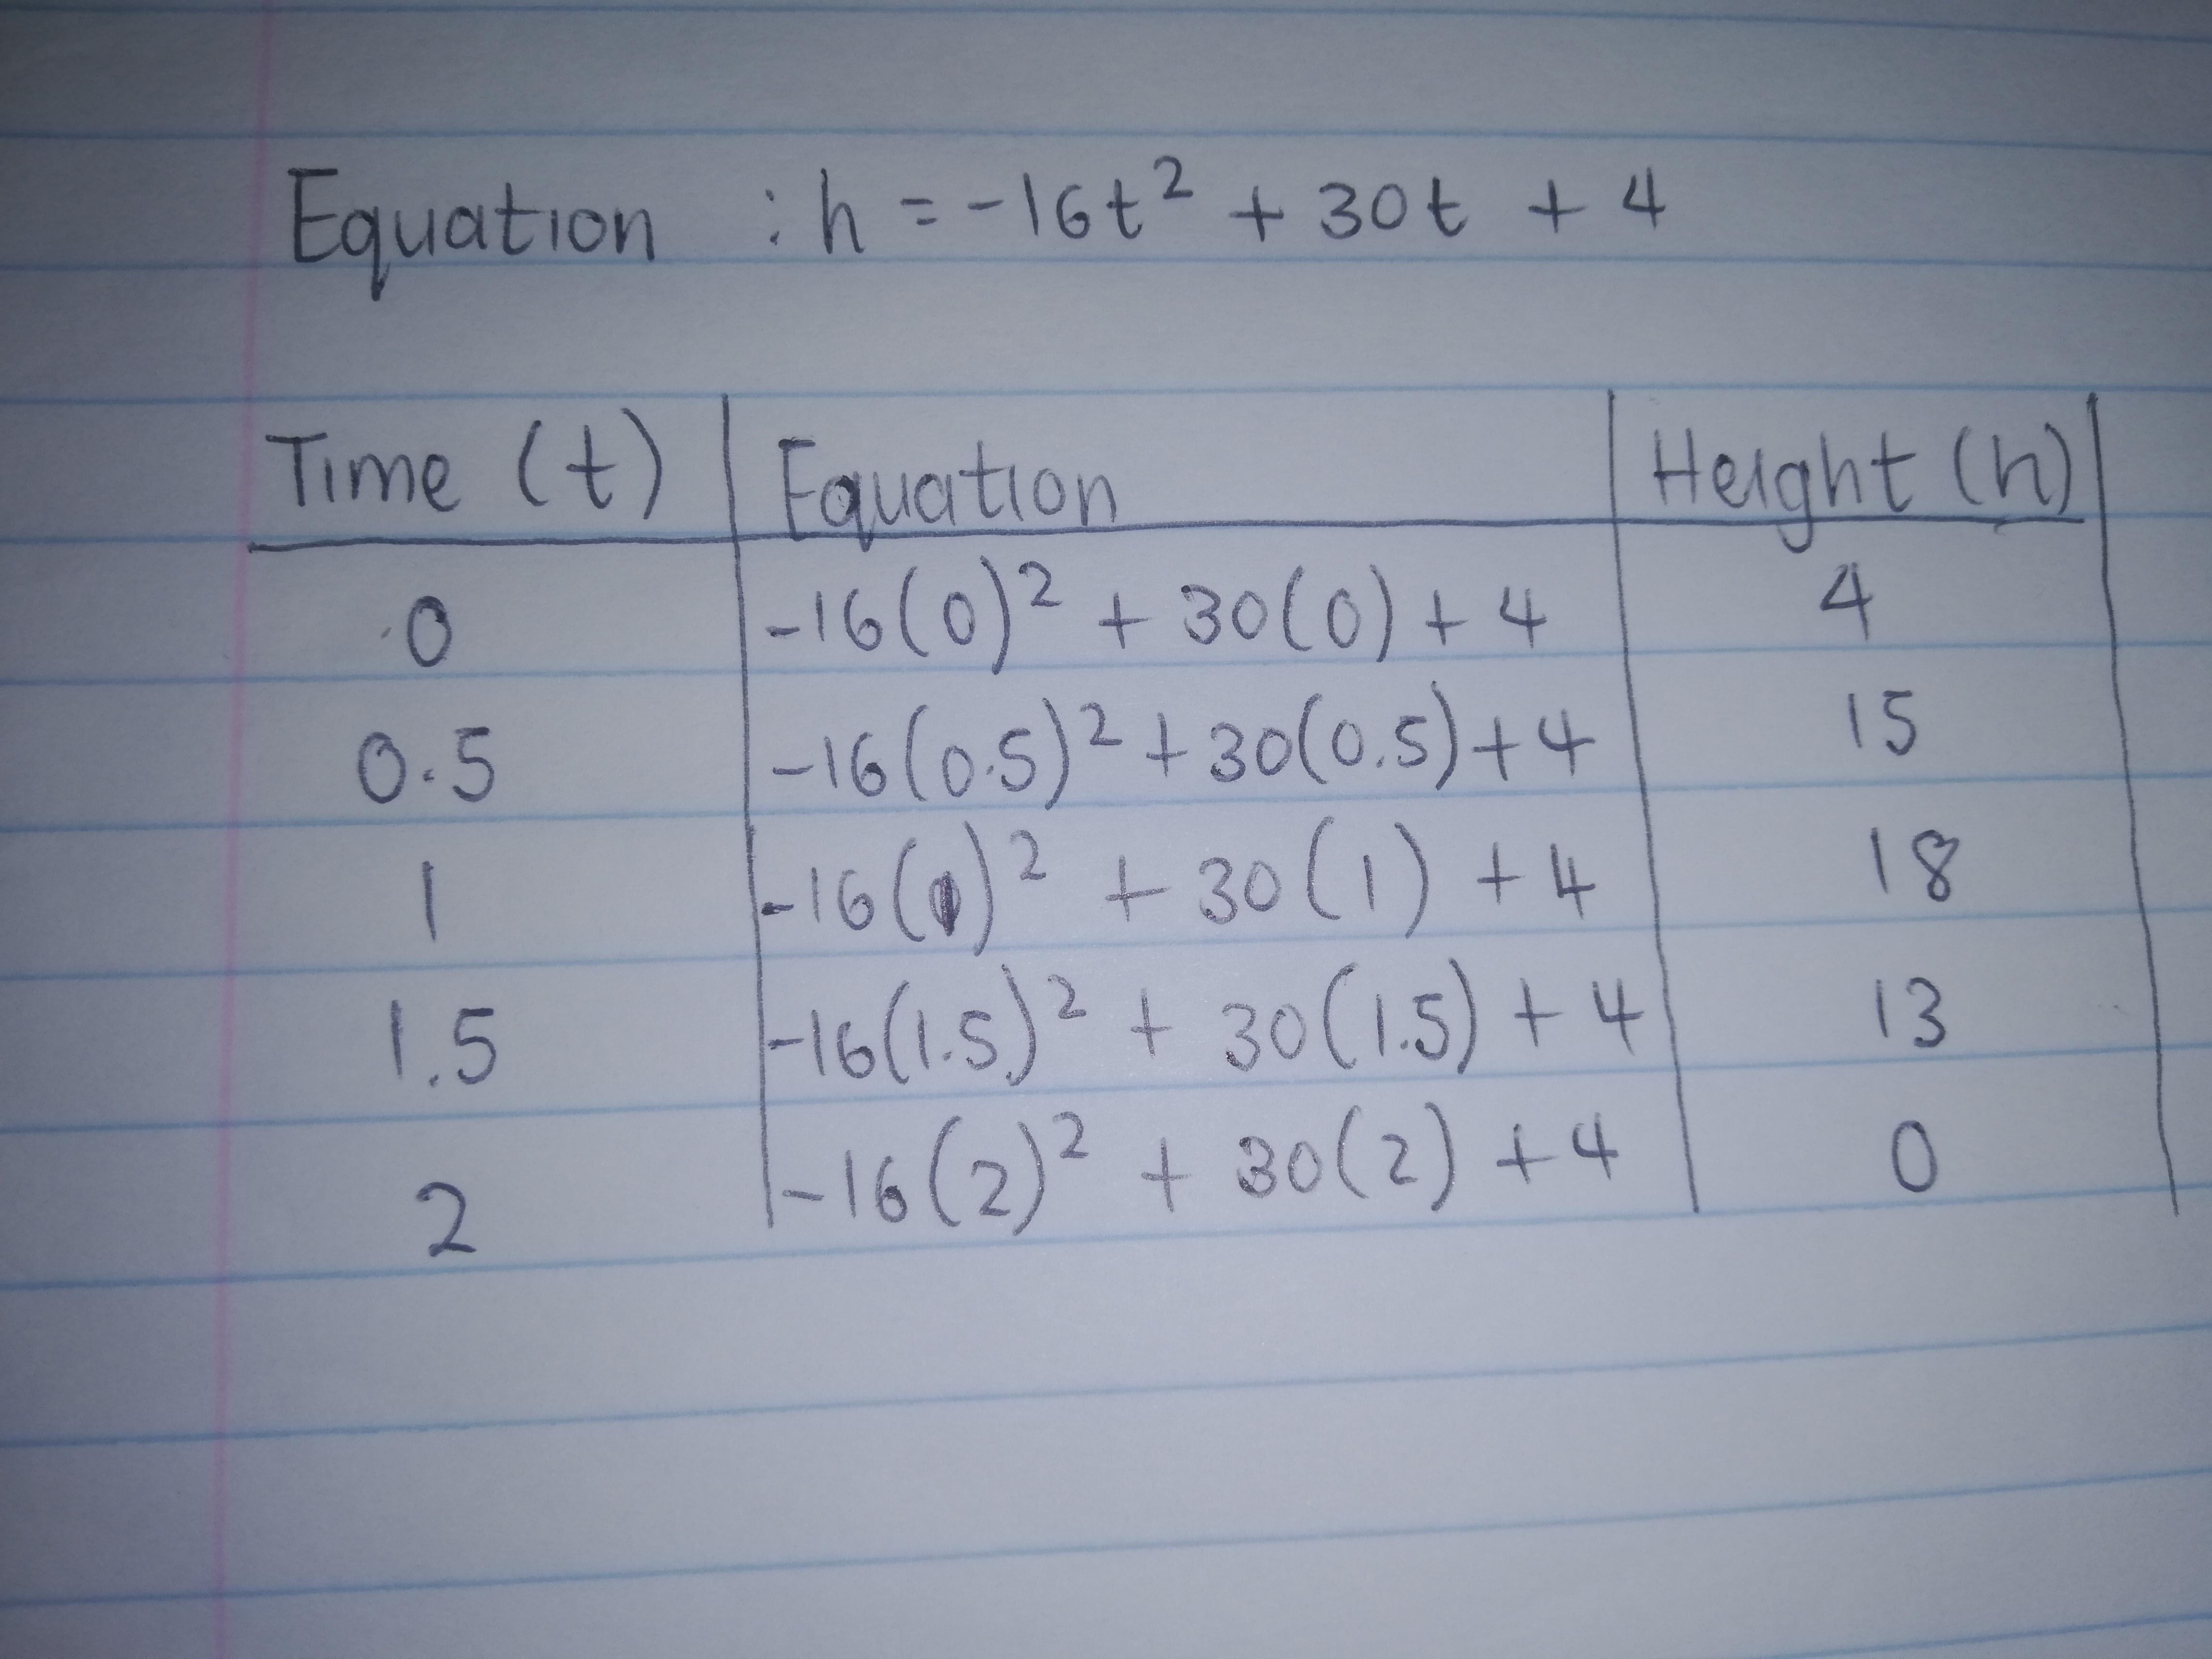 Equation : h = -16t² + 30t + 4
Time (t) Equation Height (h)
0 -16(0)² + 30(0) + 4 4
0.5 -16(0.5)² + 30(0.5) + 4 15
1 -16(1)² + 30(1) + 4 18
1.5 -16(1.5)² + 30(1.5) + 4 13
2 -16(2)² + 30(2) + 4 0